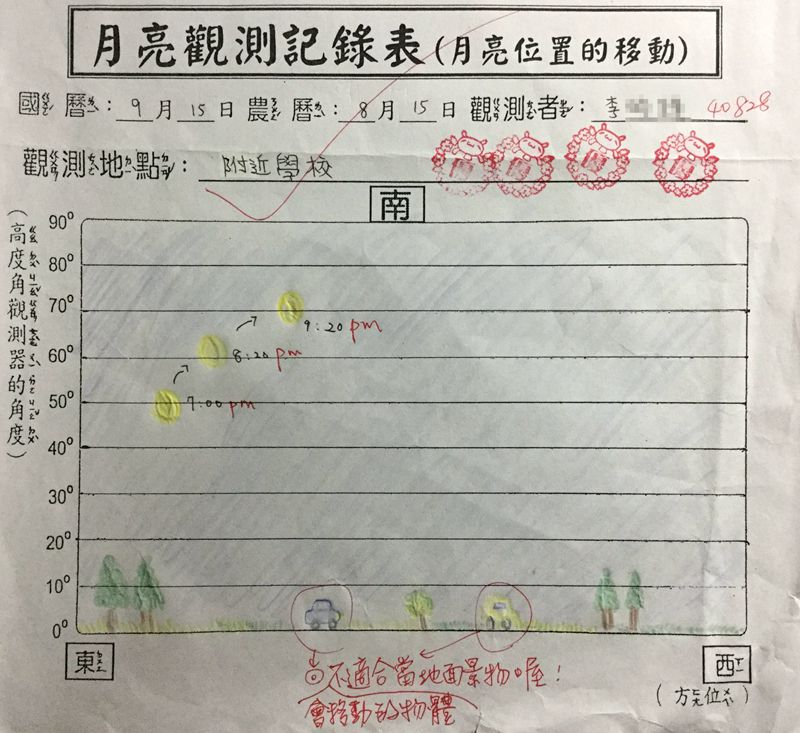 月亮觀測記錄表(月亮位置的移動)
國曆：9月15日農曆：8月15日觀測者：李 40828
觀測地點：附近學校
南
(高度角觀測器的角度)
90°
80°
70°
9:20 pm
60°
8:20 pm
50°
7:00 pm
40°
30°
20°
10°
0°
東
西
(方位)
不適合當地面景物喔!
會移動的物體